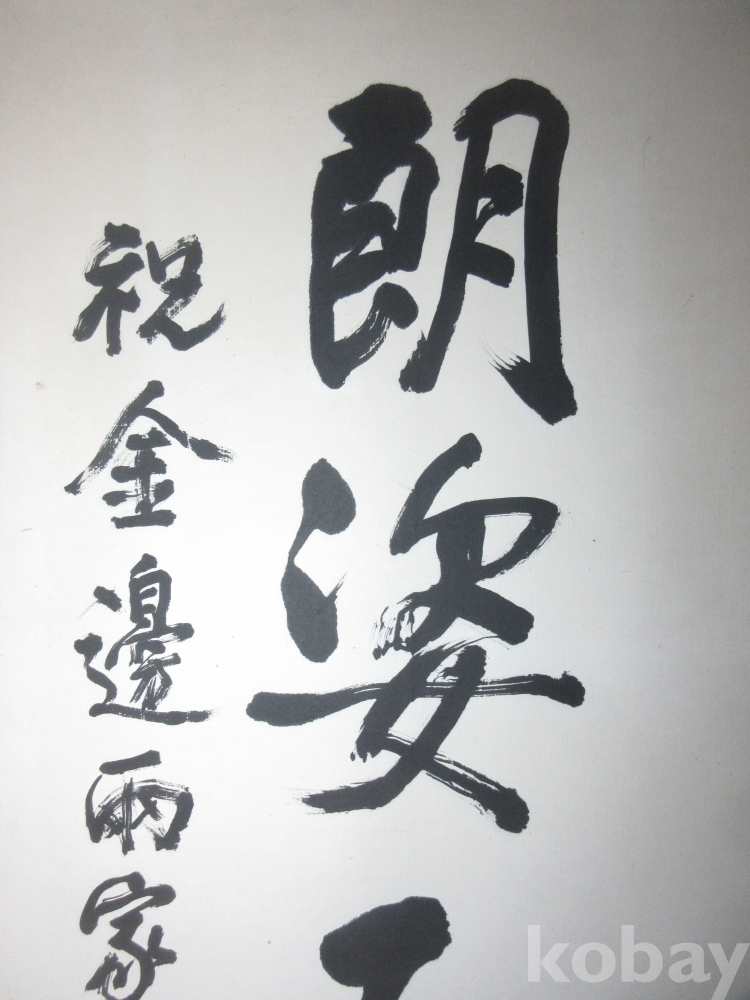 朗姿
祝金邊兩家
kobay